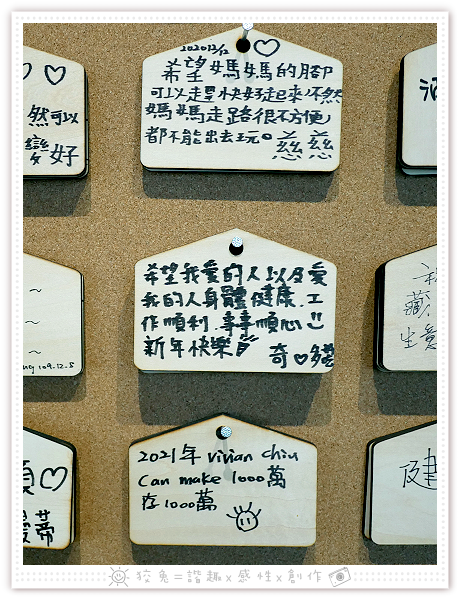 2020/12/12 ♡
希望媽媽的腳
可以走
快好起來不然
媽媽走路很不方便
都不能出去玩。慈慈
然可以
變好
希望我愛的人以及愛
我的人身體健康.工
作順利.事事順心
新年快樂
奇♡
~
~
~
109.12.5
2021年 vivian chiu
can make 1000萬
在1000萬
健
狡兔=諧趣x感性x創作